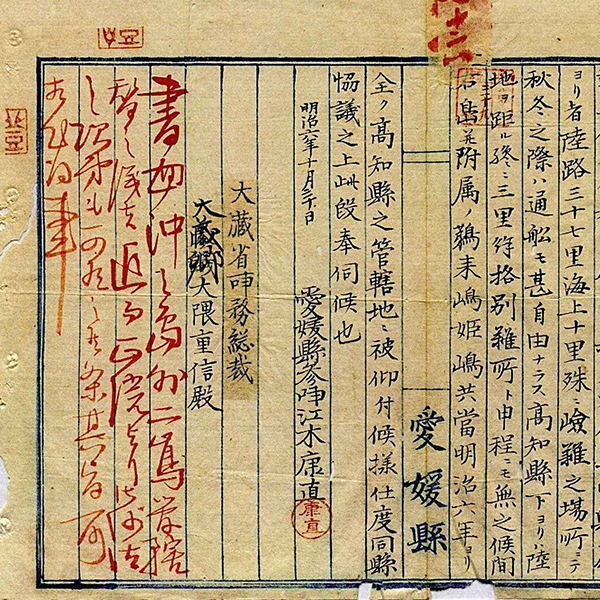 ヨリ者陸路三十七里海上十里殊ニ嶮難之場所ニテ
秋冬之際ハ通船モ甚自由ナラス高知縣下ヨリハ陸
地ヲ距ル終ニ三里符格別難所ト申程ニモ無之候間
島並附属ノ鵜来嶋姫嶋共當明治六年ヨリ
愛媛縣
全ク高知縣之管轄地ニ被仰付候様仕度同縣
協議之上此段奉伺候也
明治六年十月三十日
愛媛縣参事江木康直
康直
大蔵省事務総裁
大蔵卿大隈重信殿
書面沖之島外二島管轄
替之儀者追而正院ヨリ御達
之次第モ可有之候条其旨可
相心得事